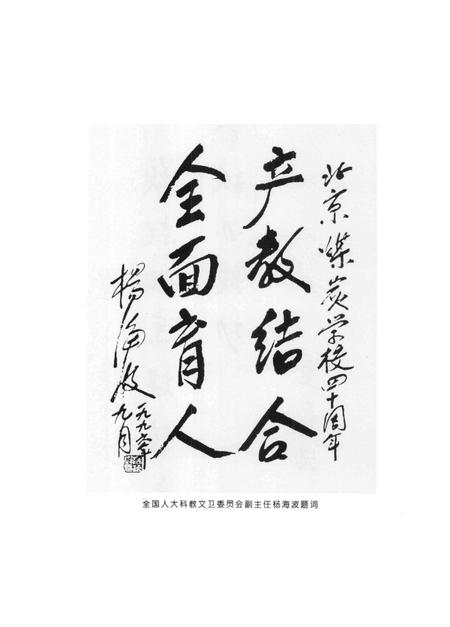 北京煤炭学校四十周年
产教结合
全面育人
杨海波
一九九六年
九月
全国人大科教文卫委员会副主任杨海波题词